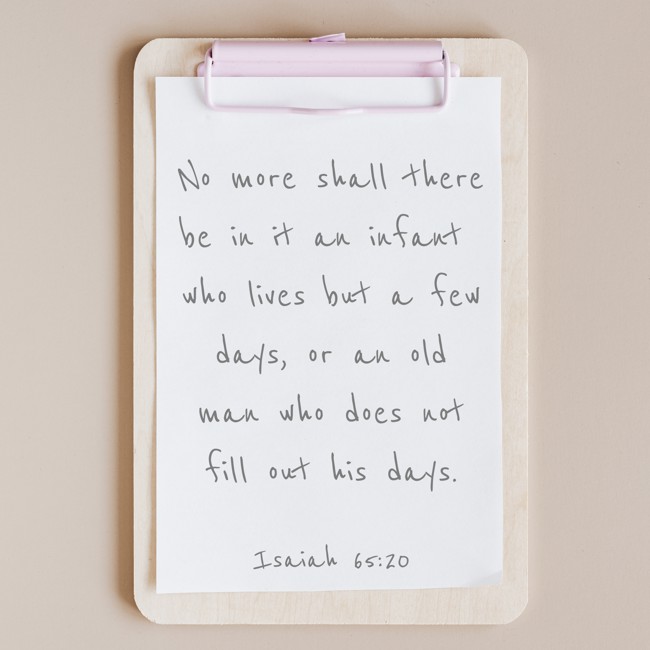 No more shall there
be in it an infant
who lives but a few
days, or an old
man who does not
fill out his days.
Isaiah 65:20